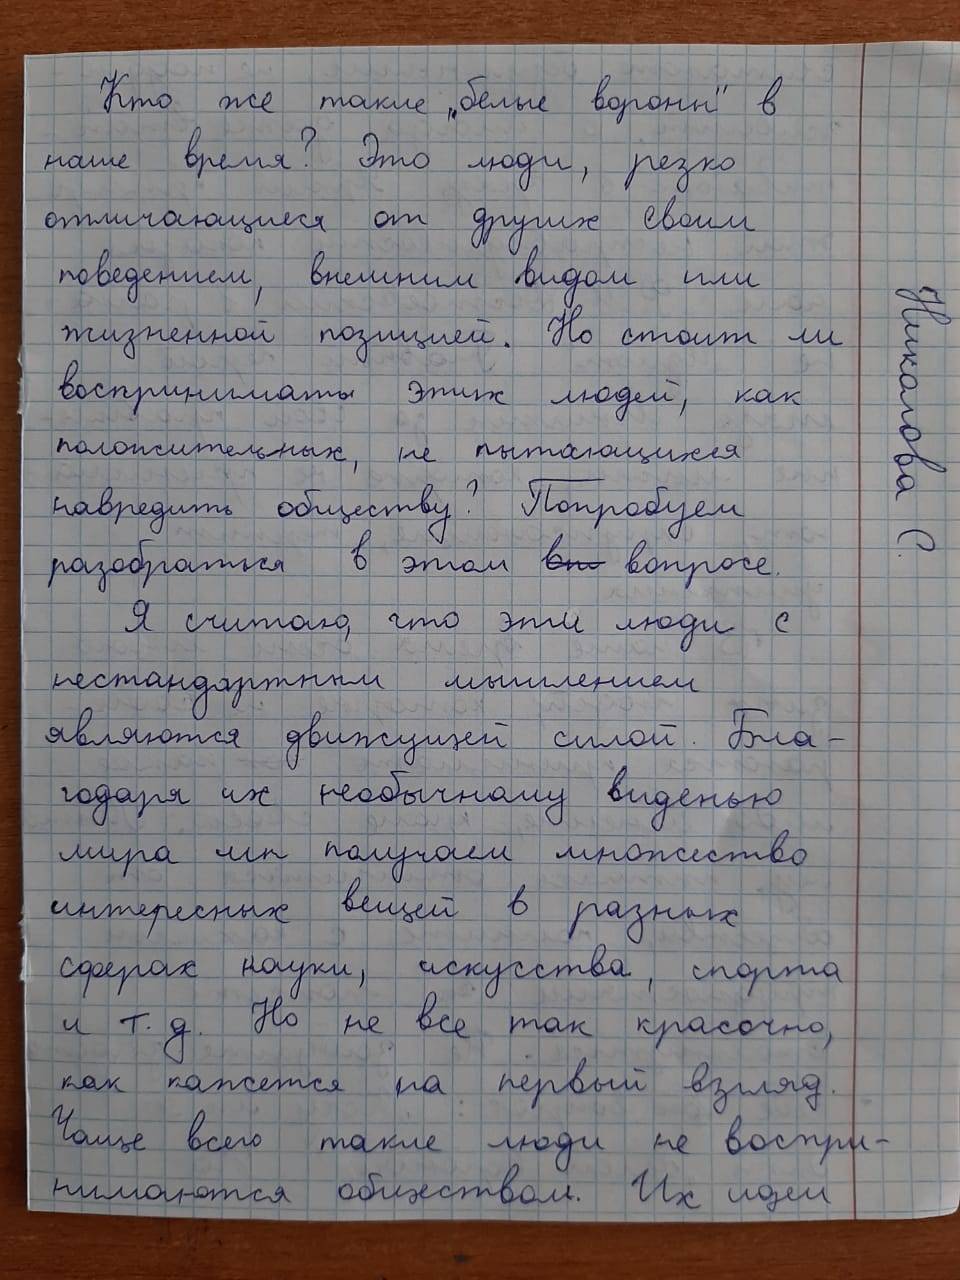 Кто же такие „белые вороны" в
наше время? Это люди, резко
отличающиеся от других своим
поведением, внешним видом или
жизненной позицией. Но стоит ли
воспринимать этих людей, как
положительных, не пытающихся
навредить обществу? Попробуем
разобраться в этом во вопросе.
Я считаю, что эти люди с
нестандартным мышлением
являются движущей силой. Бла-
годаря их необычному виденью
мира мы получаем множество
интересных вещей в разных
сферах науки, искусства, спорта
и т.д. Но не все так красочно,
как кажется на первый взгляд.
Чаще всего такие люди не воспри-
нимаются обществом. Их идеи
Никалова С.